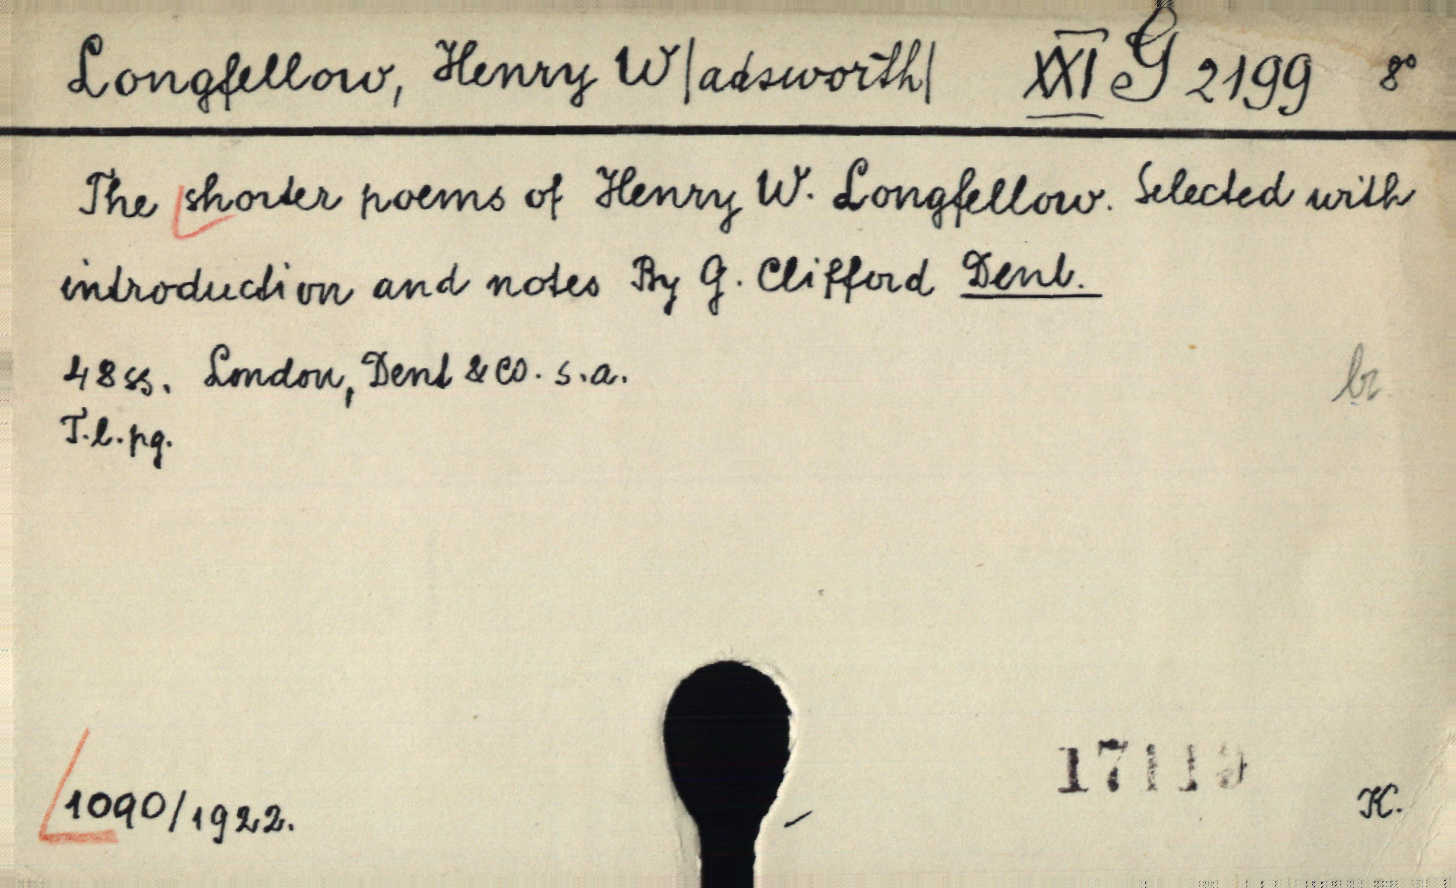 Longfellow, Henry W/adsworth/ XXI G 2199 8°
The shorter poems of Henry W. Longfellow. Selected with
introduction and notes By G. Clifford Dent.
48 ss. London, Dent & Co. s.a.
T.l.pg.
br
17119
1090/1922.
K.